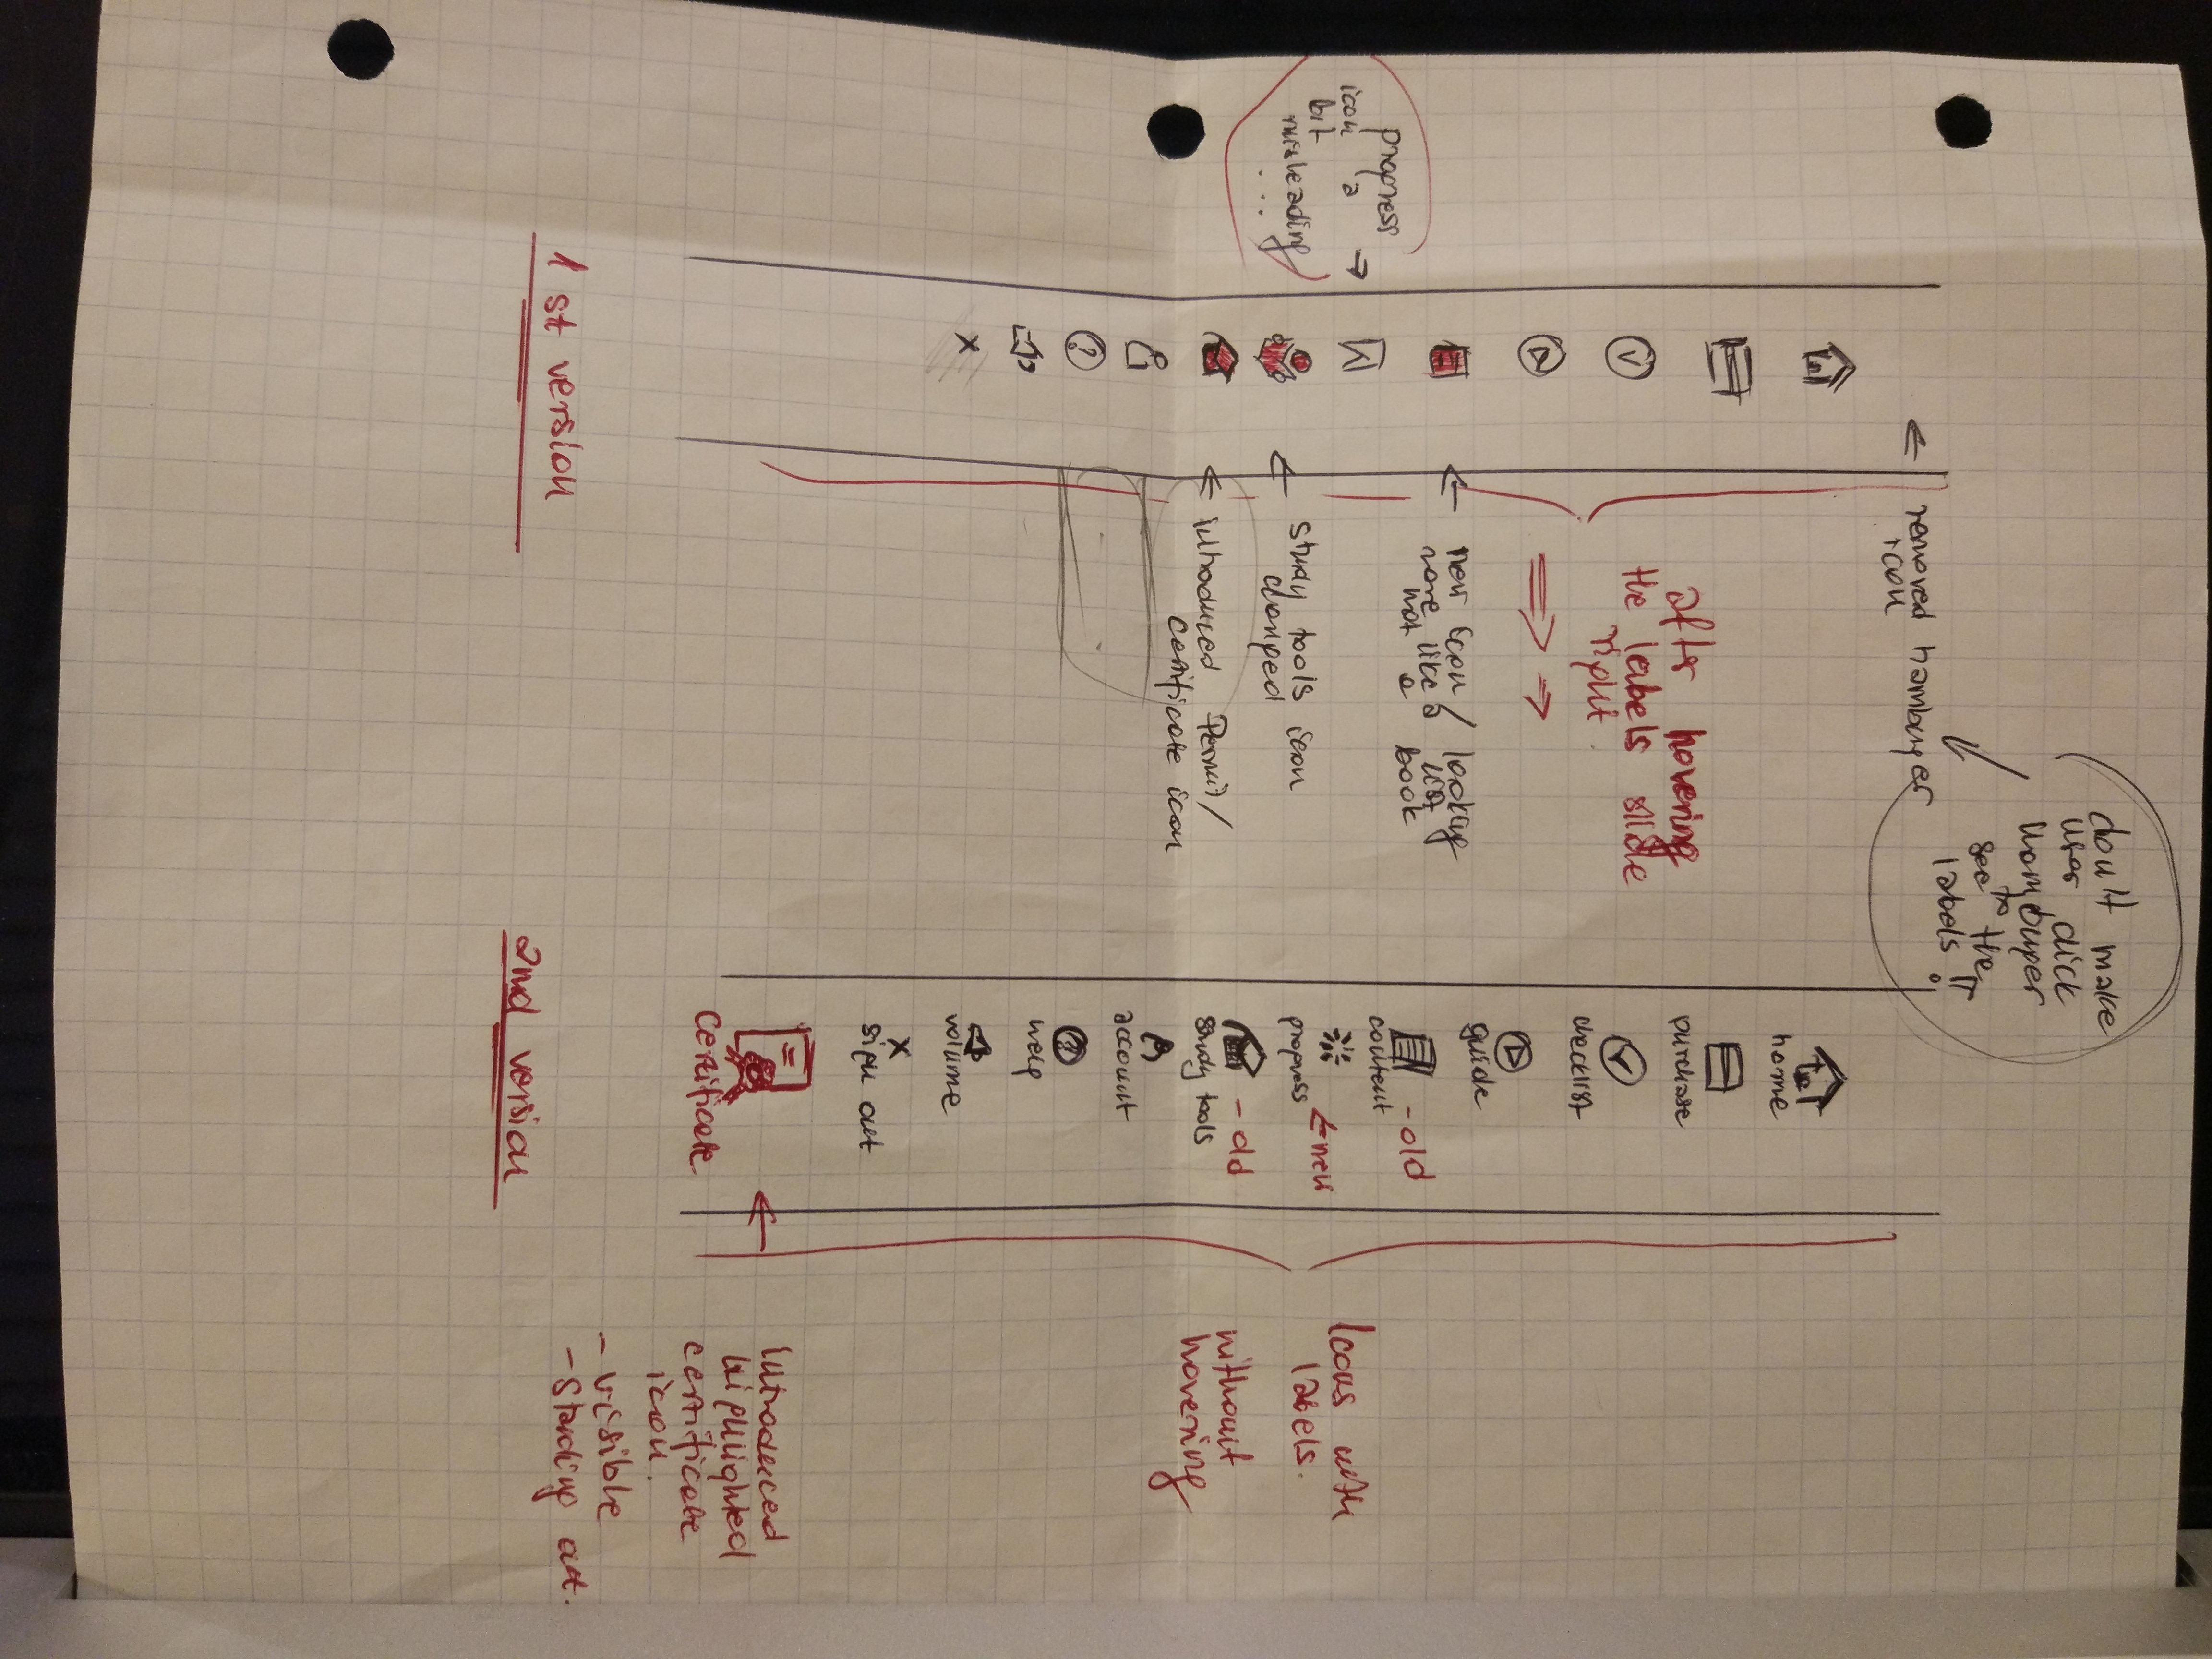 don't make
user click
hamburger
to
see the
labels !!
removed hamburger
icon
after hovering
the labels slide
right.
new icon / looking
more like a list
not a book
progress
icon a
bit
misleading
...
study tools icon
changed
introduced Permit/
certificate icon
?
1st version
home
purchase
checklist
guide
content - old
progress ← new
study tools - old
account
?
help
volume
x
sign out
Certificate
Icons with
labels.
without
hovering
Introduced
highlighted
certificate
icon.
- visible
- standing out.
2nd version